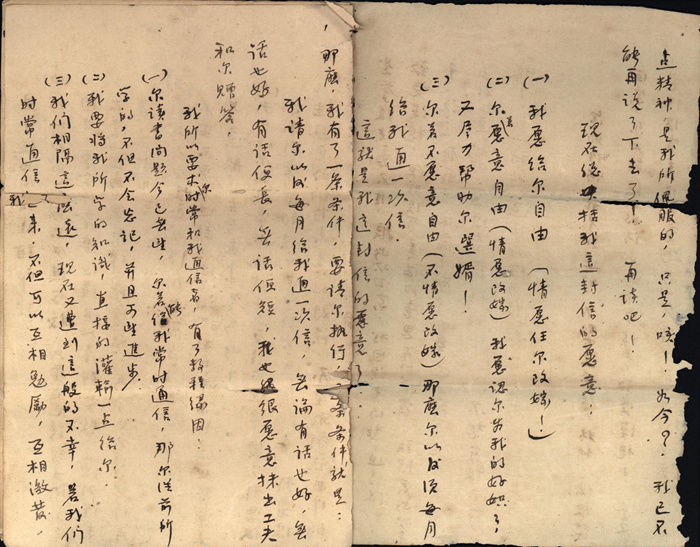 点精神是我所佩服的，只是，唉！如今？我已不
能再说了下去了！　再谈吧！
现在总括我这一封信的愿意：
（一）我愿给尔自由（情愿任尔改嫁！）
（二）尔愿意自由（情愿改嫁）我愿认尔为我的好妹了，
又尽力帮助尔选婿！
（三）尔若不愿意自由（不情愿改嫁）那么尔以后须每月
给我通一次信．
这就是我这封信的意了．
那麽，我有了一条条件，要请尔执行，条条件就是：
我请尔以后每月给我通一次信，无论有话也好，无
话也好，有话便长，无话便短，我也很愿意抹出工夫
和尔赠答，
我所以要求尔时常和我通信者，有了数种缘因：
（一）尔读书问题今已无望，尔若能给我常时通信，那尔从前所
学的，不但不会忘记，并且可望进步．
（二）我要将我所学的知识，直接的灌输一点给尔．
（三）我们相隔这么远，现在又遭到这般的不幸，若我们
时常通信我来，不但可以互相勉励，互相激发，